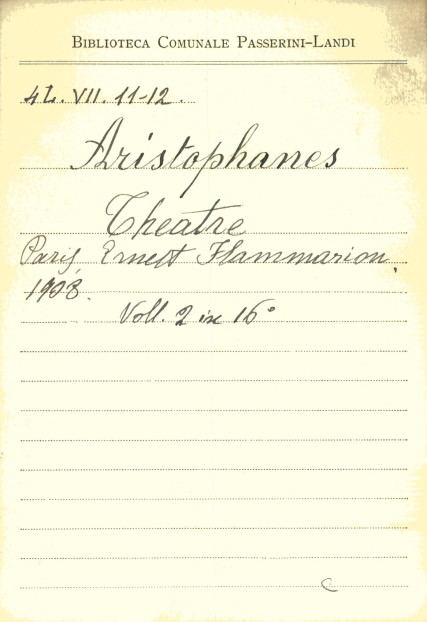 Biblioteca Comunale Passerini-Landi
4L. VII. 11-12.
Aristophanes
Theatre
Paris, Ernest Flammarion,
1908.
Voll. 2 in 16°
C